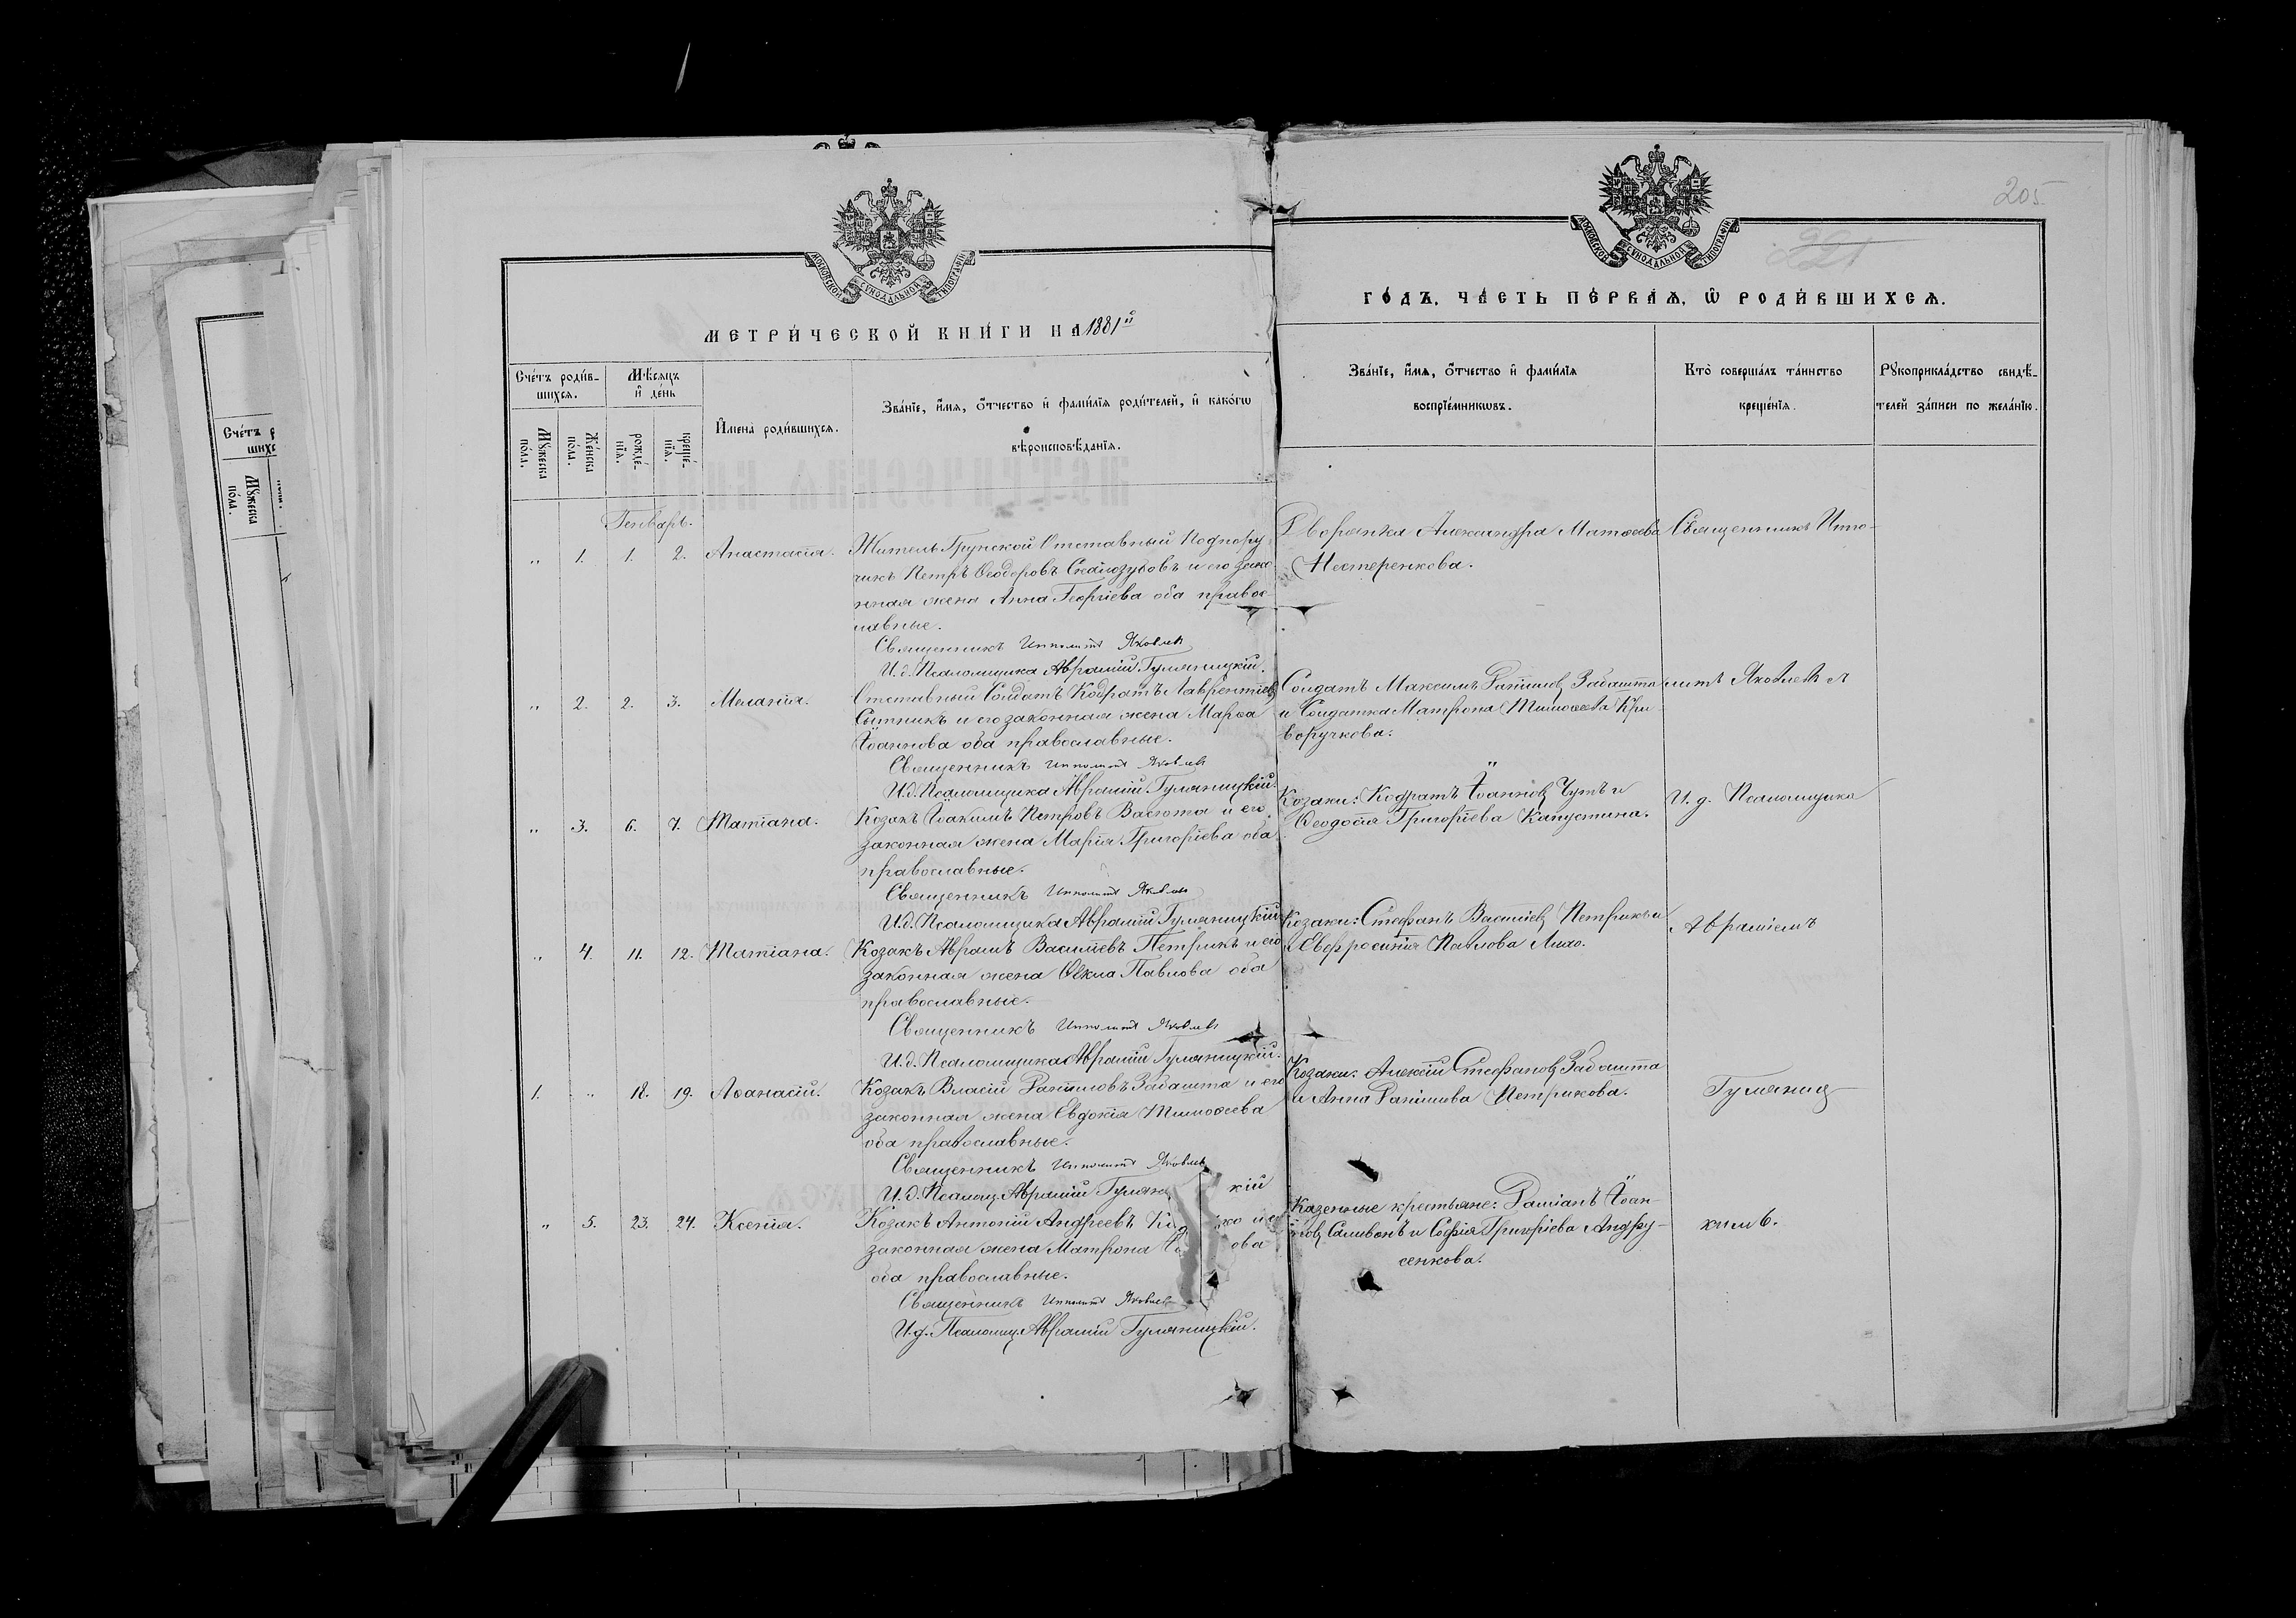 205
МЕТРИ́ЧЕСКОЙ КНИ́ГИ НА 1881й
ГО́ДЪ, ЧА́СТЬ ПЕ́РВАЯ, Ѡ РОДИ́ВШИХСЯ.
МОСКОВСКОЙ СѴНОДАЛЬНОЙ ТИПОГРАФІИ
МОСКОВСКОЙ СѴНОДАЛЬНОЙ ТИПОГРАФІИ
Сче́тъ роди́в-
шихся.
Мѣ́сяцъ
и҆ де́нь
Мꙋ́жеска
по́ла.
Же́нска
по́ла.
рожде́-
нїѧ.
креще́-
нїѧ.
И҆мена̀ роди́вшихся.
Зва́нїе, и҆́мя, о҆́тчество и҆ фами́лїя роди́телей, и҆ како́гѡ
вѣроисповѣ́данїя.
Зва́нїе, и҆́мя, о҆́тчество и҆ фами́лїя
воспрїе́мникѡвъ.
Кто̀ соверша́лъ та́инство
креще́нїя.
Рꙋкоприкла́дство свидѣ́-
телей за́писи по жела́нїю.
Генварь.
„ 1. 1. 2. Анастасія. Житель Грунской Отставный Подпору
чикъ Петръ Ѳеодоровъ Скалозубовъ и его зако
нная жена Анна Георгіева оба правос
лавные.
Священникъ Ипполитъ Яковлевъ
И.д. Псаломщика Аврамій Гумяницкій.
Дворянка Александра Матѳеева
Нестеренкова.
Священникъ Иппо-
„ 2. 2. 3. Меланія. Отставный Солдатъ Кодратъ Лаврентіевъ
Сытникъ и его законная жена Марѳа
Іоаннова оба православные.
Священникъ Ипполитъ Яковлевъ
И.д. Псаломщика Аврамій Гумяницкій.
Солдатъ Максимъ Даніиловъ Забашта
и Солдатка Матрона Тимоѳеева Кри-
воручкова.
литъ Яковлевъ и
„ 3. 6. 7. Татіана. Козакъ Іоакимъ Петровъ Васюта и его
законная жена Марія Григоріева оба
православные.
Священникъ Ипполитъ Яковлевъ
И.д. Псаломщика Аврамій Гумяницкій
Козаки: Кодратъ Іоанновъ Чутъ и
Ѳеодосія Григоріева Капустина.
И.д. Псаломщика
„ 4. 11. 12. Татіана. Козакъ Аврамъ Василіевъ Петрикъ и его
законная жена Ѳекла Павлова оба
православные.
Священникъ Ипполитъ Яковлевъ
И.д. Псаломщика Аврамій Гумяницкій.
Козаки: Стефанъ Василіевъ Петрикъ и
Евфросинія Павлова Лихо.
Авраміемъ
1. „ 18. 19. Аѳанасій. Козакъ Власій Даніиловъ Забашта и его
законная жена Евдокія Тимоѳеева
оба православные.
Священникъ Ипполитъ Яковлевъ
И.д. Псаломщ. Аврамій Гумяни кій
Козаки: Алексій Стефановъ Забашта
и Анна Даніилова Петрикова.
Гумяниц-
„ 5. 23. 24. Ксенія. Козакъ Антоній Андреевъ
законная жена Матрона ова
оба православные.
Священникъ Ипполитъ Яковлевъ
И.д. Псаломщ. Аврамій Гумяницкій.
Казенные крестьяне: Даміанъ Іоан-
новъ Саливонъ и Софія Григоріева Андру-
сенкова.
кимъ.